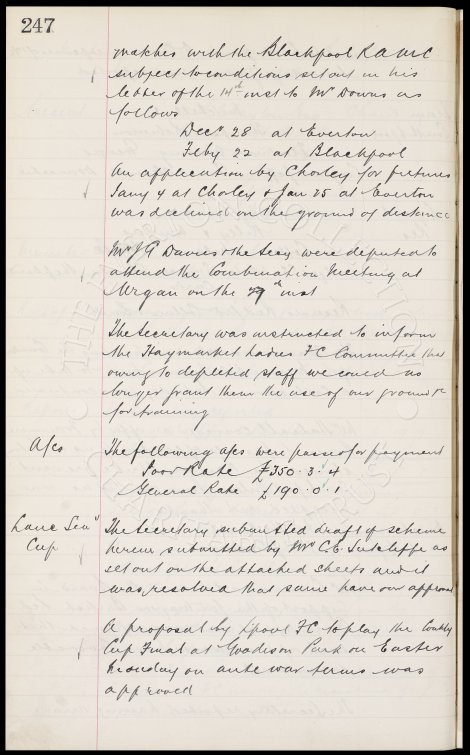 247
matches with the Blackpool RAMC
subject to conditions set out in his
letter of the 14th inst to Mr Downs as
follows
Decr 28 at Everton
Feby 22 at Blackpool
An application by Chorley for fixtures
Jany 4 at Chorley & Jan 25 at Everton
was declined on the ground of distance
Mr J G Davies & the Secy were deputed to
attend the Combination Meeting at
Wigan on the 29th inst
The Secretary was instructed to inform
the Haymarket Ladies FC Committee that
owing to depleted staff we could no
longer grant them the use of our ground &c
for training
A/cs
The following a/cs were passed for payment
Poor Rate £350.3.4
General Rate £190.0.1
Lanc Senr
Cup
The Secretary submitted draft of scheme
herein submitted by Mr C.E. Sutcliffe as
set out on the attached sheets and it
was resolved that same have our approval
A proposal by L'pool FC to play the County
Cup Final at Goodison Park on Easter
Monday on ante war terms was
approved